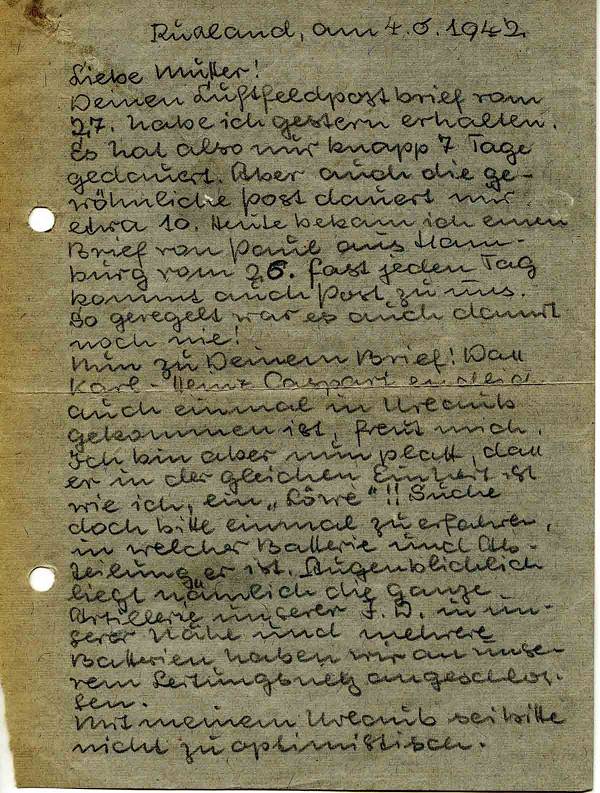 Rußland, am 4.6.1942
Liebe Mutter!
Deinen Luftfeldpostbrief vom
27. habe ich gestern erhalten.
Es hat also nur knapp 7 Tage
gedauert. Aber auch die ge-
wöhnliche Post dauert nur
etwa 10. Heute bekam ich einen
Brief von Paul aus Ham-
burg vom 26. fast jeden Tag
kommt auch Post zu uns.
So geregelt war es auch damit
noch nie!
Nun zu Deinem Brief! Daß
Karl-Heinz Caspari endlich
auch einmal in Urlaub
gekommen ist, freut mich.
Ich bin aber nun platt, daß
er in der gleichen Einheit ist
wie ich, ein „Löwe"!! Suche
doch bitte einmal zu erfahren,
in welcher Batterie und Ab-
teilung er ist. Augenblicklich
liegt nämlich die ganze
Artillerie unserer I.D. in un-
serer Nähe und mehrere
Batterien haben wir an unse-
rem Leitungsnetz angeschlos-
sen.
Mit meinem Urlaub sei bitte
nicht zu optimistisch.